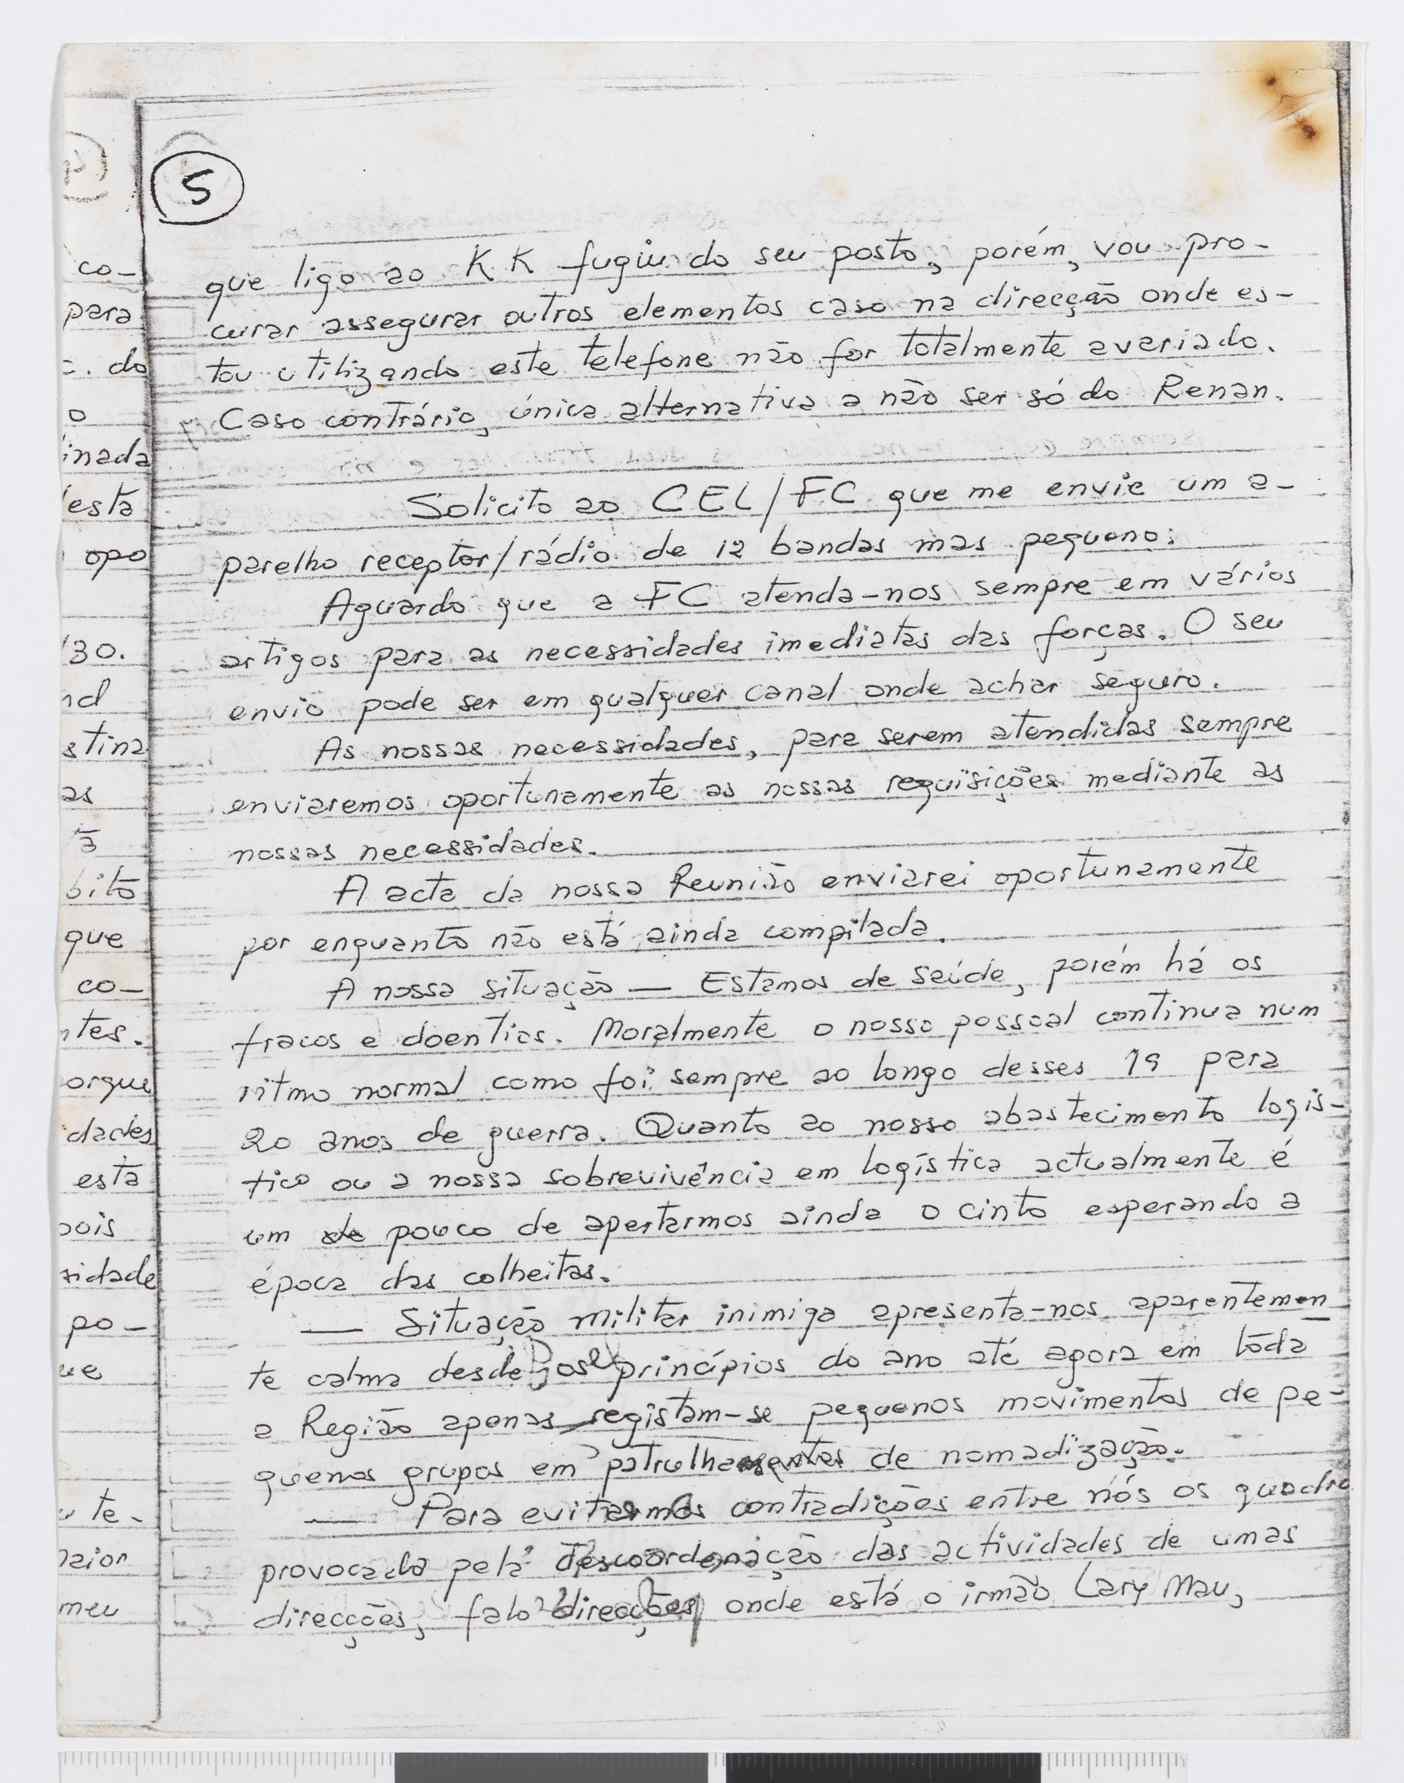 5
que ligo ao KK fugiu do seu posto, porém, vou pro-
curar assegurar outros elementos caso na direcção onde es-
tou utilizando este telefone não for totalmente averiado.
Caso contrário, única alternativa a não ser só do Renan.
Solicito ao CEL/FC que me envie um a-
parelho receptor/rádio de 12 bandas mas pequeno.
Aguardo que a FC atenda-nos sempre em vários
artigos para as necessidades imediatas das forças. O seu
envio pode ser em qualquer canal onde achar seguro.
As nossas necessidades, para serem atendidas sempre
enviaremos oportunamente as nossas requisições mediante as
nossas necessidades.
A acta da nossa Reunião enviarei oportunamente
por enquanto não está ainda compilada.
A nossa situação — Estamos de saúde, porém há os
fracos e doentios. Moralmente o nosso pessoal continua num
ritmo normal como foi sempre ao longo desses 19 para
20 anos de guerra. Quanto ao nosso abastecimento logis-
tico ou a nossa sobrevivência em logística actualmente é
um de pouco de apertarmos ainda o cinto esperando a
época das colheitas.
— Situação militar inimiga apresenta-nos aparentemen
te calma desde os princípios do ano até agora em toda
a Região apenas registam-se pequenos movimentos de pe-
quenos grupos em patrulhamentos de nomadização.
— Para evitarmos contradições entre nós os quadro
provocada pela descoordenação das actividades de umas
direcções, falo direcções onde está o irmão Lary Mau,
co-
para
do
o
inada
esta
opo
30.
stina
as
bito
que
co-
ntes.
orque
dades
esta
pois
sidade
po-
ue
te-
maior
meu